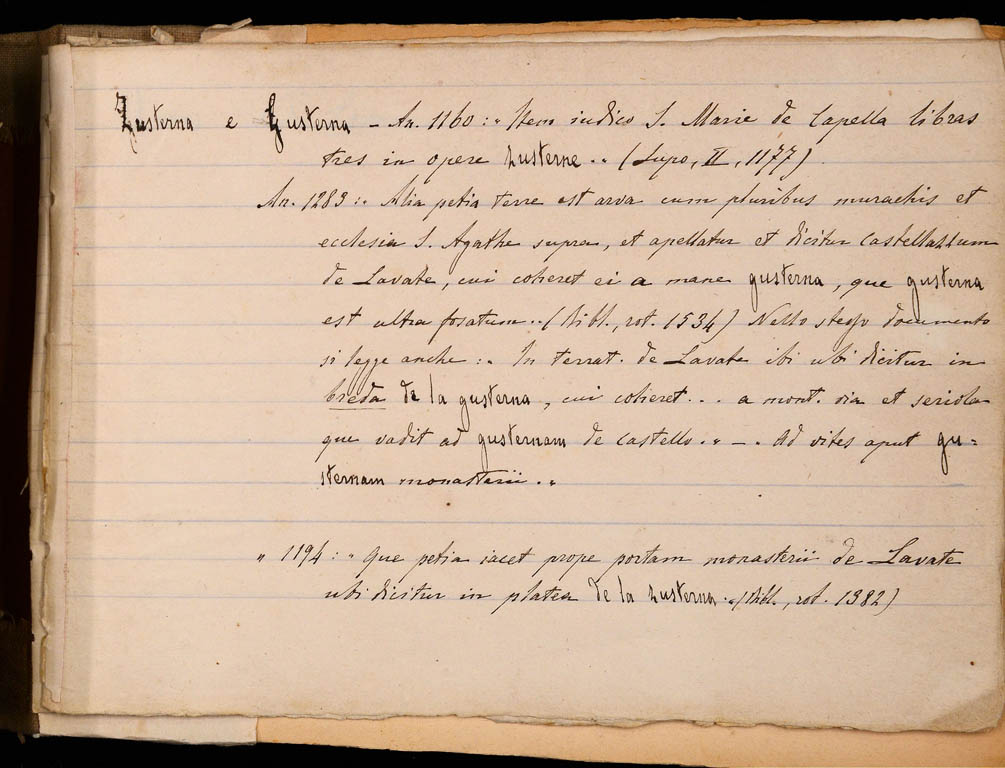 Zusterna e Gusterna - An. 1160 : „ Item iudico S. Marie de Capella libras
tres in opere zusterne „. (Lupo, II, 1177).
An. 1283 : „ Alia petia terre est arva cum pluribus murachis et
ecclesia S. Agathe supra, et apellatur et dicitur castellazzum
de Lavate, cui coheret ei a mane gusterna, que gusterna
est ultra fosatum „. (Bibl., rot. 1534) Nello stesso documento
si legge anche : „ In territ. de Lavate ibi ubi dicitur in
breda de la gusterna, cui coheret . . . a mont. via et seriola
que vadit ad gusternam de castello „. - „ Ad vites aput gu=
sternam monasterii „.
„ 1194 : „ Que petia iacet prope portam monasterii de Lavate
ubi dicitur in platea de la zusterna „. (Bibl., rot. 1382)